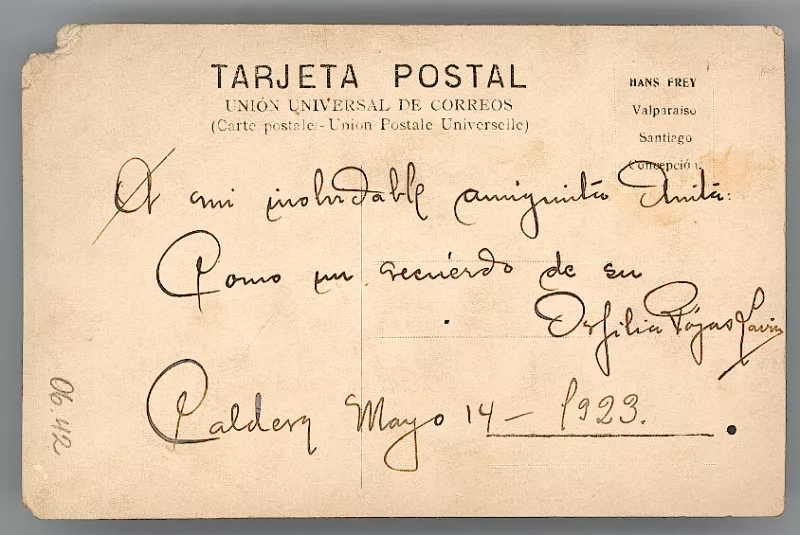 TARJETA POSTAL
UNIÓN UNIVERSAL DE CORREOS
(Carte postale - Union Postale Universelle)
HANS FREY
Valparaiso
Santiago
Concepción
A mi inolvidable amiguita Anita:
Como un recuerdo de su
Ersilia Rójas
Caldera Mayo 14 — 1923.
06.42